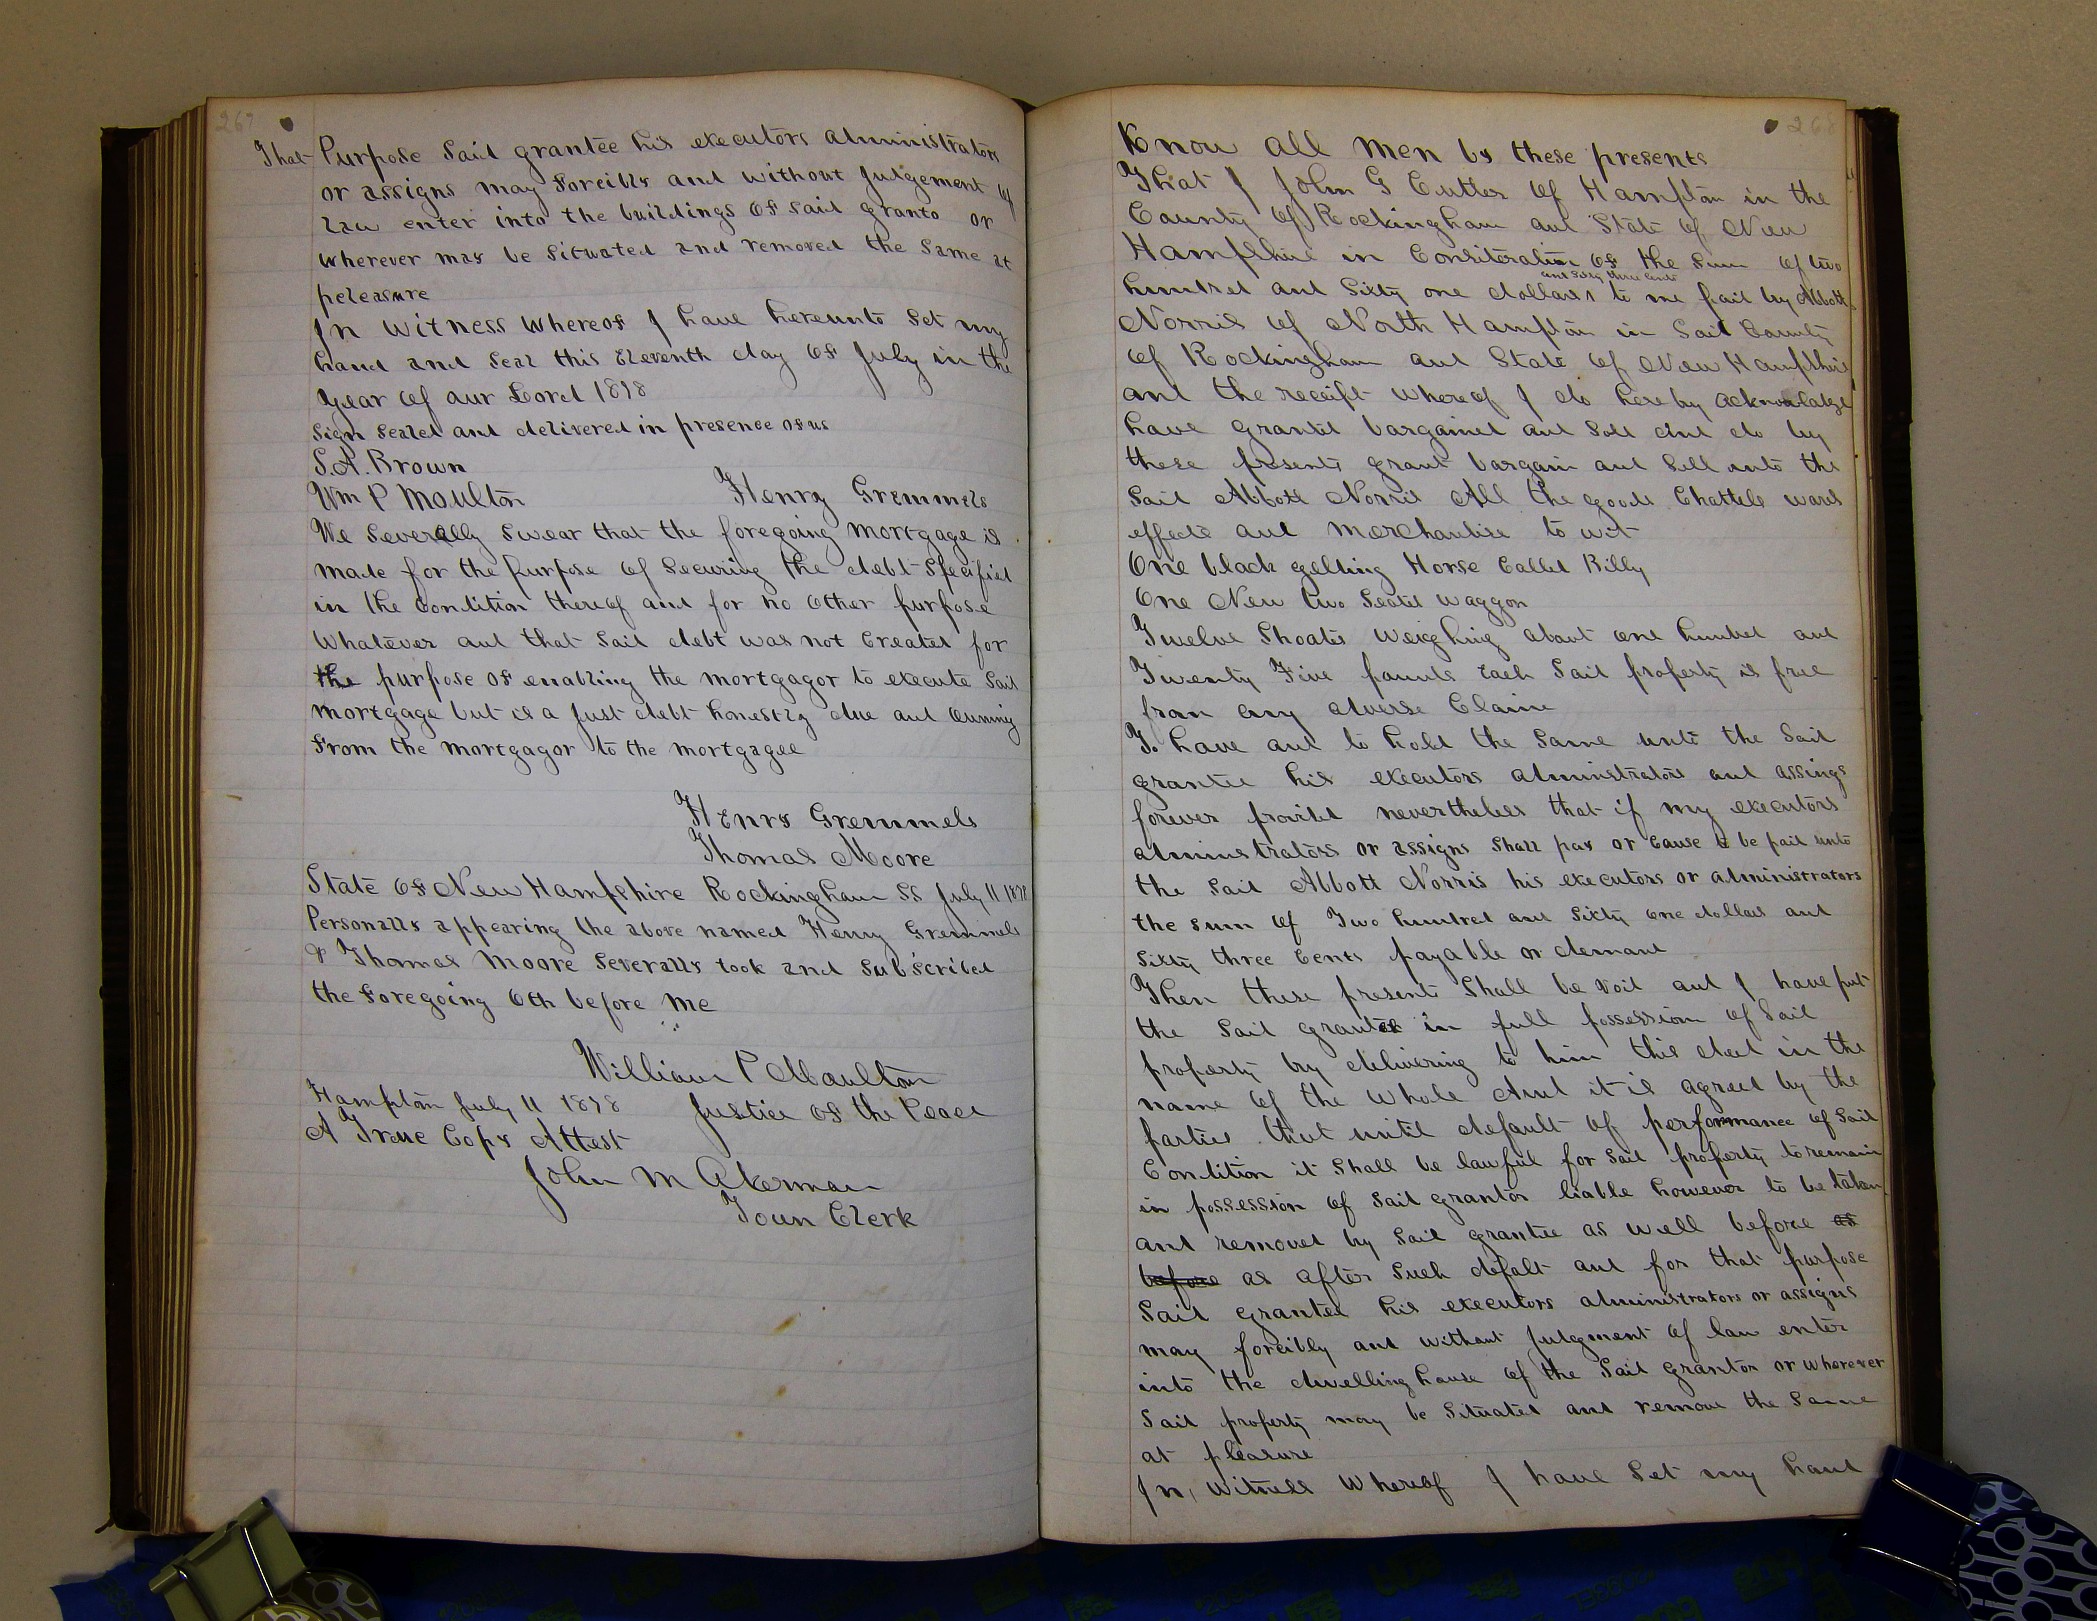 267
That Purpose Said grantee his executors administrators
or assigns may forcibly and without Judgement of
law enter into the buildings of said granto or
wherever may be Situated and removed the Same at
peleasure
In witness whereof I have hereunto Set my
hand and Seal this Eleventh day of July in the
year of aur Lord 1878
Sign Sealed and delivered in presence of us
S.A. Brown
Wm P Moulton Henry Gremmels
We Severally Swear that the foregoing Mortgage is
made for the purpose of Securing the debt Specified
in the Condition thereof and for no other purpose
Whatever and that Said debt was not Created for
the purpose of enabling the mortgagor to execute Said
mortgage but is a Just debt honestly due and Owning
from the mortgagor to the mortgagee
Henry Gremmels
Thomas Moore
State of New Hampshire Rockingham SS July 11 1878
Personally appearing the above named Henry Gremmels
& Thomas Moore Severally took and Subscribed
the foregoing Oth before Me
William P Moulton
Hampton July 11 1878 Justice of the Peace
A True Copy Attest
John M Akerman
Town Clerk
268
Know all men by these presents
That I John G Cutter of Hampton in the
County of Rockingham and State of New
Hampshire in Consideration of the Sum of two
and Sixty three cents
hundred and Sixty one dollars to me paid by Abbott
Norris of North Hampton in Said County
of Rockingham and State of New Hampshire
and the receipt whereof I do hereby acknowladge
have granted bargained and Sold And do by
these presents grant bargain and Sell unto the
Said Abbott Norris All the goods Chattels wares
effects and merchandise to wit
One black gelding Horse Called Billy
One New two Seated waggon
Twelve Shoates weighing about one hundred and
Twenty Five pounds each Said property is free
from any adverse Claim
To have and to hold the Same unto the Said
grantee his executors administrators and assings
forever provided nevertheless that if my executors
administrators or assigns Shall pay or Cause to be paid unto
the Said Abbott Norris his executors or administrators
the sum of Two hundred and Sixty one dollars and
Sixty three Cents payable on demand
Then these presents Shall be void and I have put
the Said grantee in full possession of Said
property by delivering to him this deed in the
name of the whole And it is agreed by the
parties that until default of performance of Said
Condition it Shall be lawful for Said property to remain
in possession of Said grantor liable however to be taken
and removed by Said grantee as well before as
before as after Such defalt and for that purpose
Said grantee his executors administrators or assigns
may forcibly and without Judgment of law enter
into the dwelling house of the Said grantor or wherever
Said property may be Situated and remove the Same
at pleasure
In, witness Whereof I have Set my hand